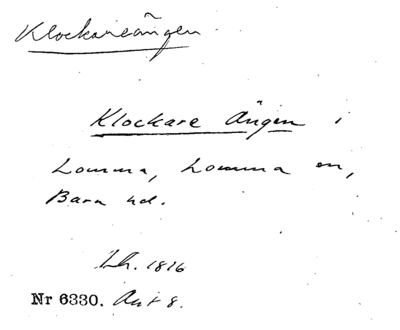 Klockareängen
Klockare Ängen i
Lomma, Lomma sn,
Bara hd.
Lh. 1816
Nr 6330. Akt 8.